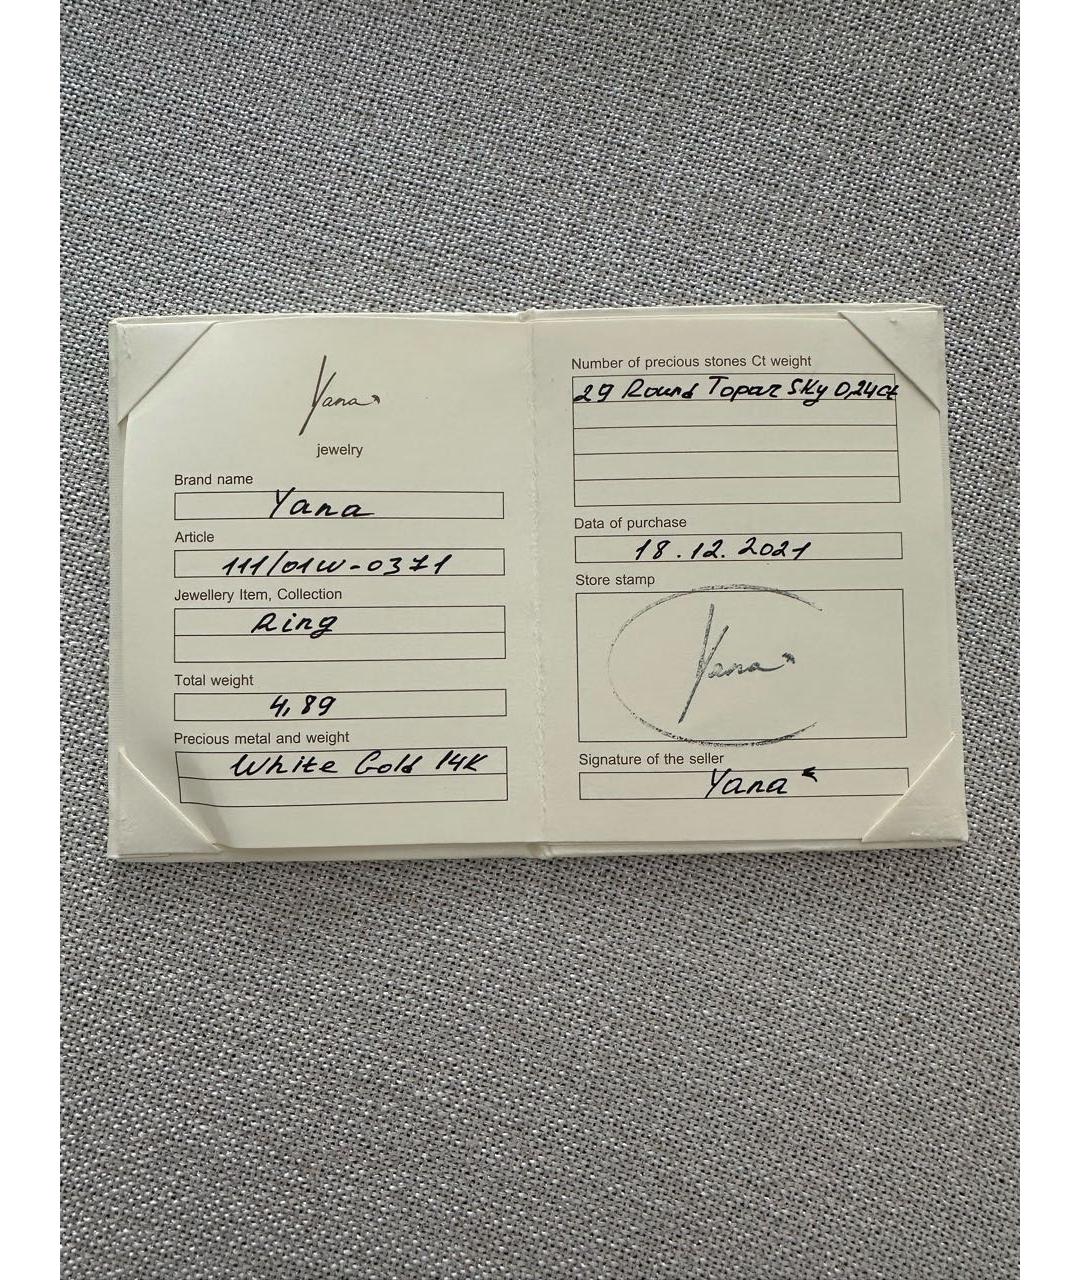 Yana
jewelry
Brand name
Yana
Article
111/01W-0371
Jewellery Item, Collection
Ring
Total weight
4,89
Precious metal and weight
White Gold 14K
Number of precious stones Ct weight
29 Round Topaz Sky 0,24ct
Data of purchase
18.12.2021
Store stamp
Yana
Signature of the seller
Yana